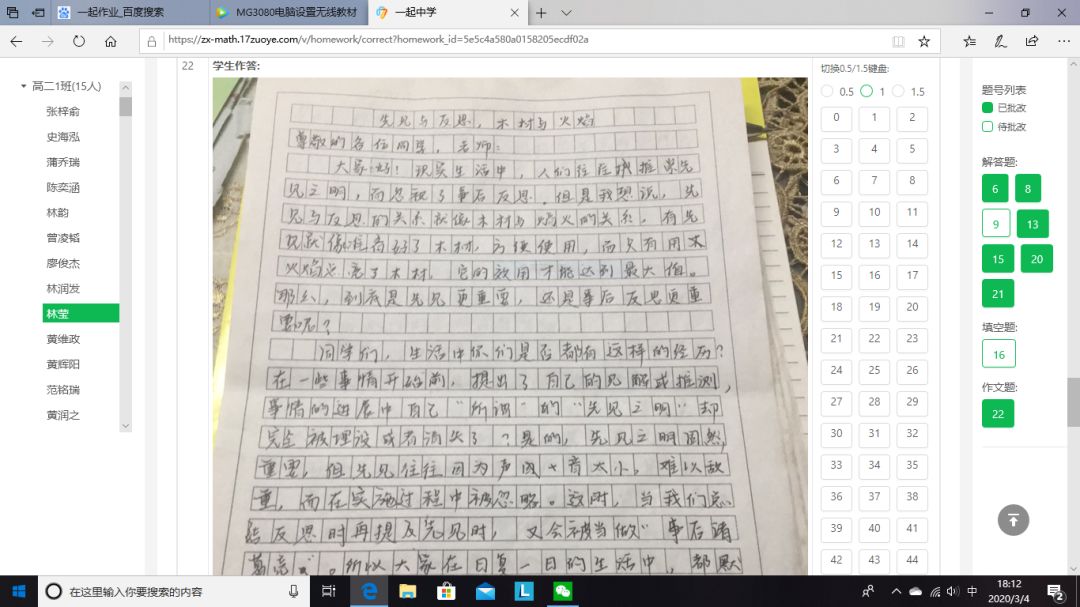 一起作业_百度搜索
MG3080电脑设置无线教材
一起中学
https://zx-math.17zuoye.com/v/homework/correct?homework_id=5e5c4a580a0158205ecdf02a
高二1班(15人)
张梓俞
史海泓
蒲乔瑞
陈奕涵
林韵
曾凌韬
廖俊杰
林润发
林莹
黄维政
黄辉阳
范铭瑞
黄润之
22 学生作答:
先见与反思,木材与火焰
尊敬的各位同学,老师:
大家好!现实生活中,人们往往推崇先
见之明,而忽视了事后反思。但是我想说,先
见与反思的关系就像木材与焰火的关系,有先
见就像准备好了木材,方便使用,而只有用
火焰点亮了木材,它的效用才能达到最大值。
那么,到底是先见更重要,还是事后反思更重
要呢?
同学们,生活中你们是否都有这样的经历?
在一些事情开始前,提出了自己的见解或推测,
事情的进展中自己"所谓"的"先见之明"却
完全被埋没或者消失了?是的,先见之明固然
重要,但先见往往因为声音太小,难以敌
重,而在实施过程中被忽略。这时,当我们总
结反思时再提及先见时,又会被当做"事后诸
葛亮"。所以大家在日复一日的生活中,都默
切换0.5/1.5键盘:
0.5 1 1.5
0 1 2
3 4 5
6 7 8
9 10 11
12 13 14
15 16 17
18 19 20
21 22 23
24 25 26
27 28 29
30 31 32
33 34 35
36 37 38
39 40 41
42 43 44
题号列表
已批改
待批改
解答题:
6 8
9 13
15 20
21
填空题:
16
作文题:
22
在这里输入你要搜索的内容
中
18:12
2020/3/4
2